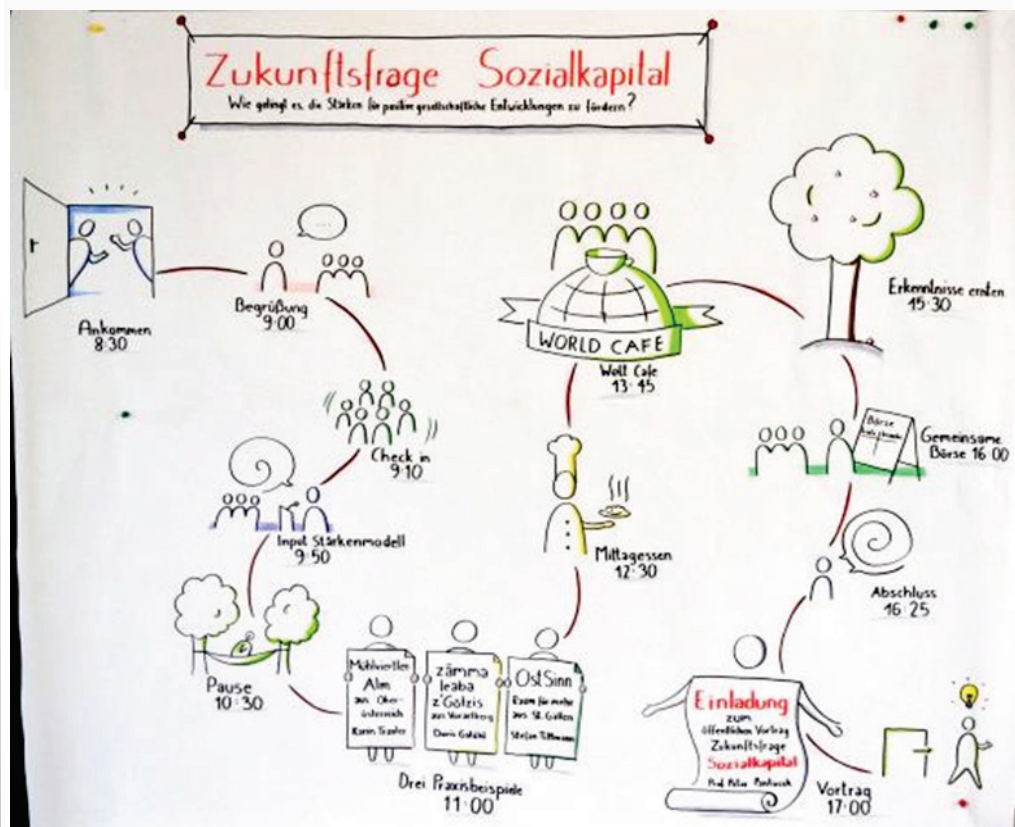 Zukunftsfrage Sozialkapital
Wie gelingt es, die Stärken für positive gesellschaftliche Entwicklungen zu fördern?
Ankommen
8:30
Begrüßung
9:00
Check in
9:10
Input Stärkenmodell
9:50
Pause
10:30
Mühlviertler
Alm
aus Ober-
österreich
Karin
zämma
leaba
z'Götzis
aus Vorarlberg
Doris
OstSinn
Raum für mehr
aus St. Gallen
Stefan Tittmann
Drei Praxisbeispiele
11:00
Mittagessen
12:30
WORLD CAFE
Welt Cafe
13:45
Erkenntnisse ernten
15:30
Börse
Gemeinsame
Börse 16:00
Abschluss
16:25
Einladung
zum
öffentlichen Vortrag
Zukunftsfrage
Sozialkapital
Prof. Peter
Vortrag
17:00